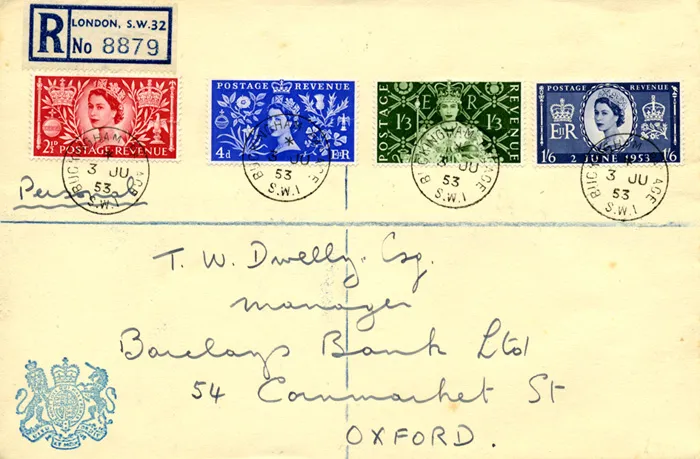 R LONDON, S.W.32
No 8879
2½D POSTAGE REVENUE
POSTAGE REVENUE
4d E II R
POSTAGE REVENUE
E R
1/3 1/3
POSTAGE REVENUE
E II R
1/6 2 JUNE 1953 1/6
BUCKINGHAM PALACE
3 JU
53
S.W.1
BUCKINGHAM PALACE
3 JU
53
S.W.1
BUCKINGHAM PALACE
3 JU
53
S.W.1
BUCKINGHAM PALACE
3 JU
53
S.W.1
Personal
T. W. Dwelly. Esq.
Manager
Barclays Bank Ltd
54 Cornmarket St
OXFORD.